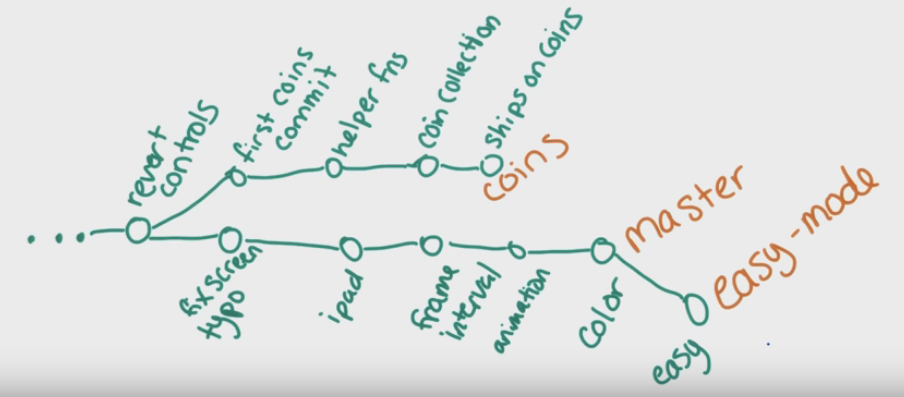 revert
controls
first coins
commit
helper fns
coin collection
ships on coins
coins
fix screen
typo
ipad
frame
interval
animation
color
master
easy
easy-mode